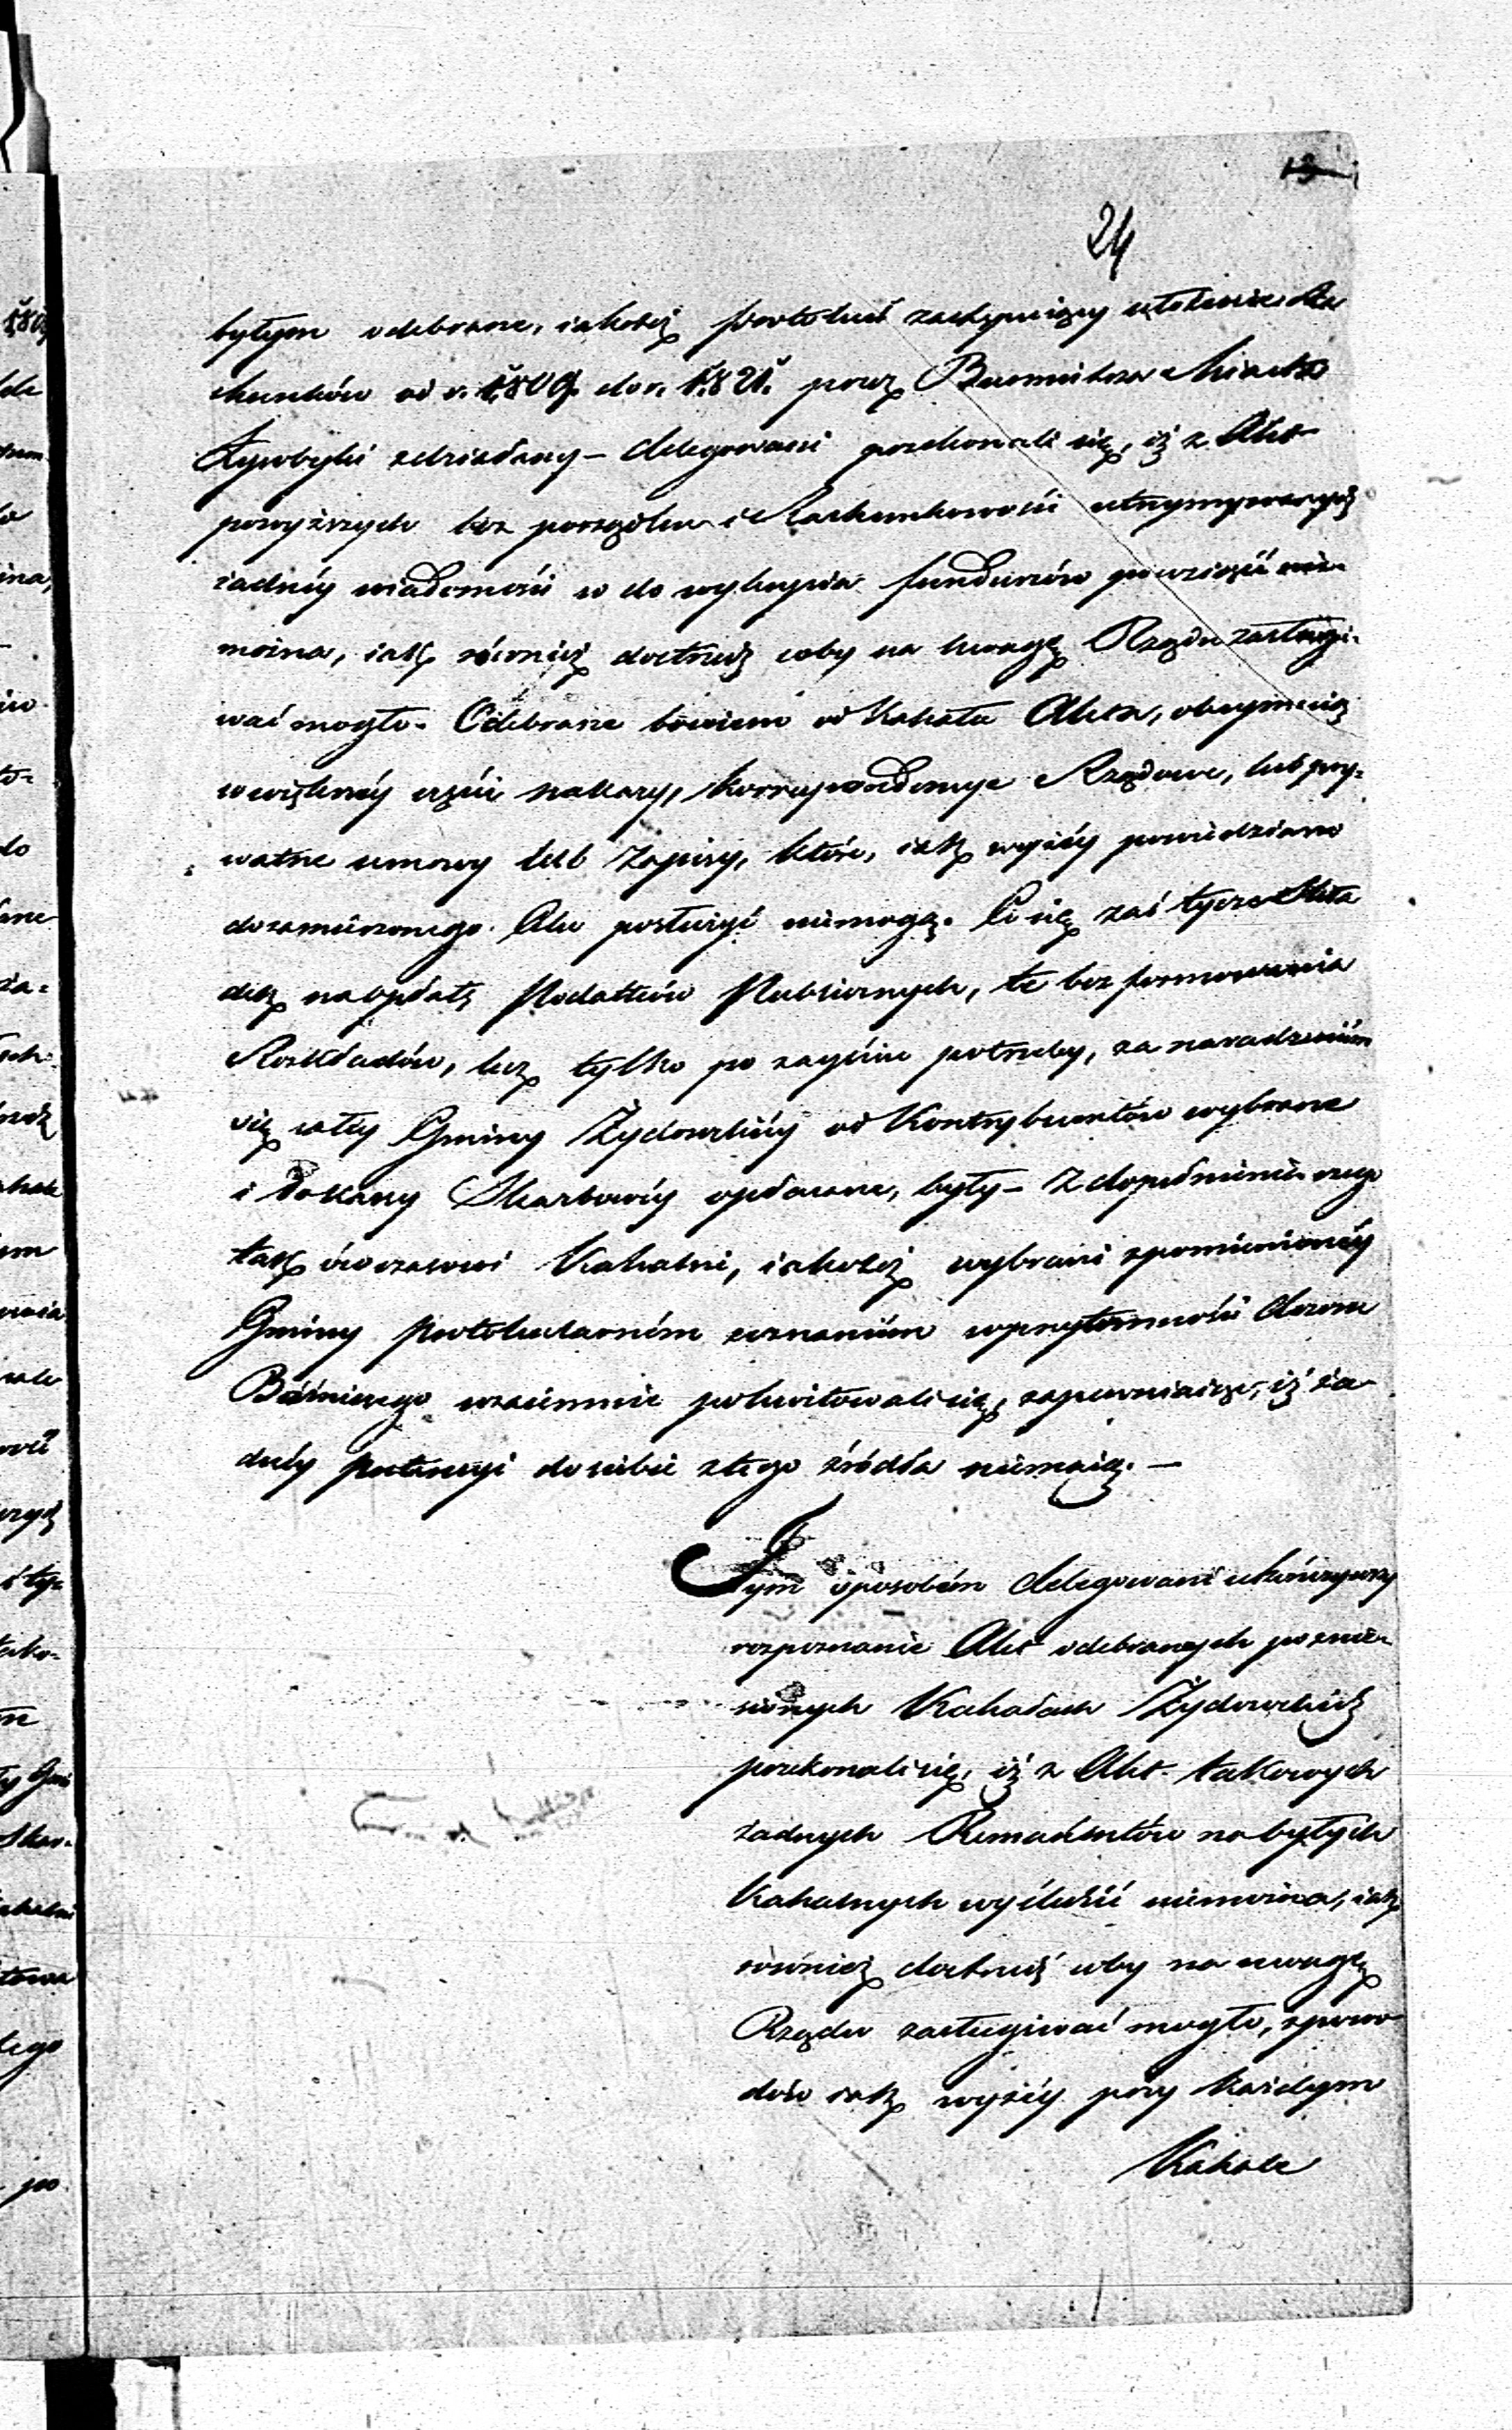 24
byłym odebrane, iakoteż Protokuł zaczynaiący ułożenie Ra
chunków od r. 1809. do r. 1821. przez Burmistrza Miasta
zdziałany – delegowani przekonali się, iż z Akt
powyższych bez porządku i Rachunkowości utrzymywanych
żadnéy wiadomości w do wykrycia funduszów powziąść nie
można, iak równięż dostrzedz coby na uwagę Rządu zasługi-
wać mogło. Odebrane bowiem od Kahału Akta, obeymuią
w większéy części nakazy, korrespondencye Rządowe, lub pry-
watne umowy lub Zapisy, które, iak wyżéy powiedziano
do zamierzonego Celu posłużyć niemogą. Co się zaś tycze Skła
dek na opłatę Podatków Publicznych, te bez formowania
Rozkładów, lecz tylko po zayściu potrzeby, za naradzeniem
się całéy Gminy Żydowskiéy od Kontrybuentów wybrane
i do kassy Skarbowéy opłacane, były – Z dopełnienia czego
tak ówczasowi Kahalni, iakoteż wybrani spomnionéy
Gminy protokularném zeznaniem w przytomności Dozoru
Bóżniczego wzaiemnie pokwitowali się, zapewniaiąc, iż ża
dnéy pretensyi do siebie z tego źródła niemaią. –
Tym sposobem delegowani ukończywszy
rozpoznanie Akt odebranych po znie-
sionych Kahałach Żydowskich
przekonali się, iż z Akt takowych
żadnych Remanentów na byłych
Kahalnych wyśledzić niemożna, iak
również dostrzedz coby na uwagę
Rządu zasługiwać mogło, z powo
dów iak wyżéy przy każdym
Kahale